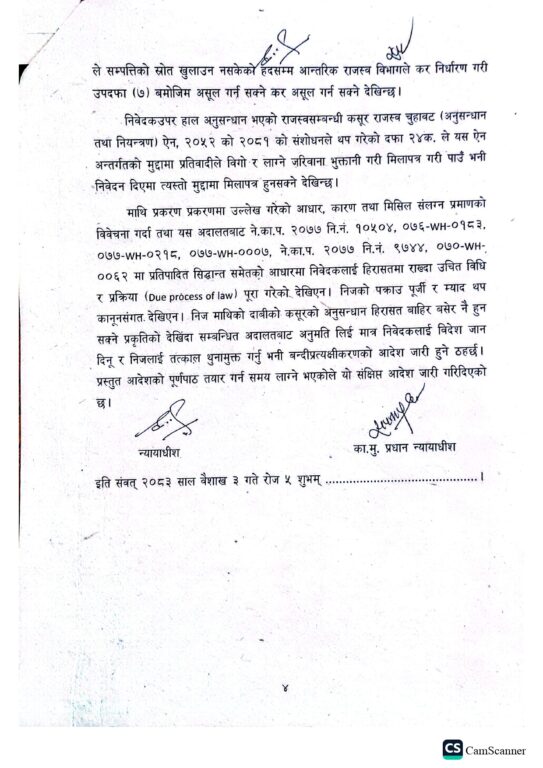 ले सम्पत्तिको स्रोत खुलाउन नसकेको हदसम्म आन्तरिक राजस्व विभागले कर निर्धारण गरी
उपदफा (७) बमोजिम असूल गर्न सक्ने कर असूल गर्न सक्ने देखिन्छ।
निवेदकउपर हाल अनुसन्धान भएको राजस्वसम्बन्धी कसूर राजस्व चुहावट (अनुसन्धान
तथा नियन्त्रण) ऐन, २०५२ को २०८१ को संशोधनले थप गरेको दफा २४क. ले यस ऐन
अन्तर्गतको मुद्दामा प्रतिवादीले विगो र लाग्ने जरिवाना भुक्तानी गरी मिलापत्र गरी पाउँ भनी
निवेदन दिएमा त्यस्तो मुद्दामा मिलापत्र हुनसक्ने देखिन्छ।
माथि प्रकरण प्रकरणमा उल्लेख गरेको आधार, कारण तथा मिसिल संलग्न प्रमाणको
विवेचना गर्दा तथा यस अदालतबाट ने.का.प. २०७७ नि.नं. १०५०४, ०७६-WH-०१८३,
०७७-WH-०२१८, ०७७-WH-०००७, ने.का.प. २०७७ नि.नं. ९७४४, ०७०-WH-
००६२ मा प्रतिपादित सिद्धान्त समेतको आधारमा निवेदकलाई हिरासतमा राख्दा उचित विधि
र प्रक्रिया (Due process of law) पूरा गरेको देखिएन। निजको पक्राउ पूर्जी र म्याद थप
कानूनसंगत देखिएन। निज माथिको दाबीको कसूरको अनुसन्धान हिरासत बाहिर बसेर नै हुन
सक्ने प्रकृतिको देखिदा सम्बन्धित अदालतबाट अनुमति लिई मात्र निवेदकलाई विदेश जान
दिनू र निजलाई तत्काल थुनामुक्त गर्नु भनी बन्दीप्रत्यक्षीकरणको आदेश जारी हुने ठहर्छ।
प्रस्तुत आदेशको पूर्णपाठ तयार गर्न समय लाग्ने भएकोले यो संक्षिप्त आदेश जारी गरिदिएको
छ।
न्यायाधीश
का.मु. प्रधान न्यायाधीश
इति संवत् २०८३ साल वैशाख ३ गते रोज ५ शुभम् ............................................।
४
CS CamScanner